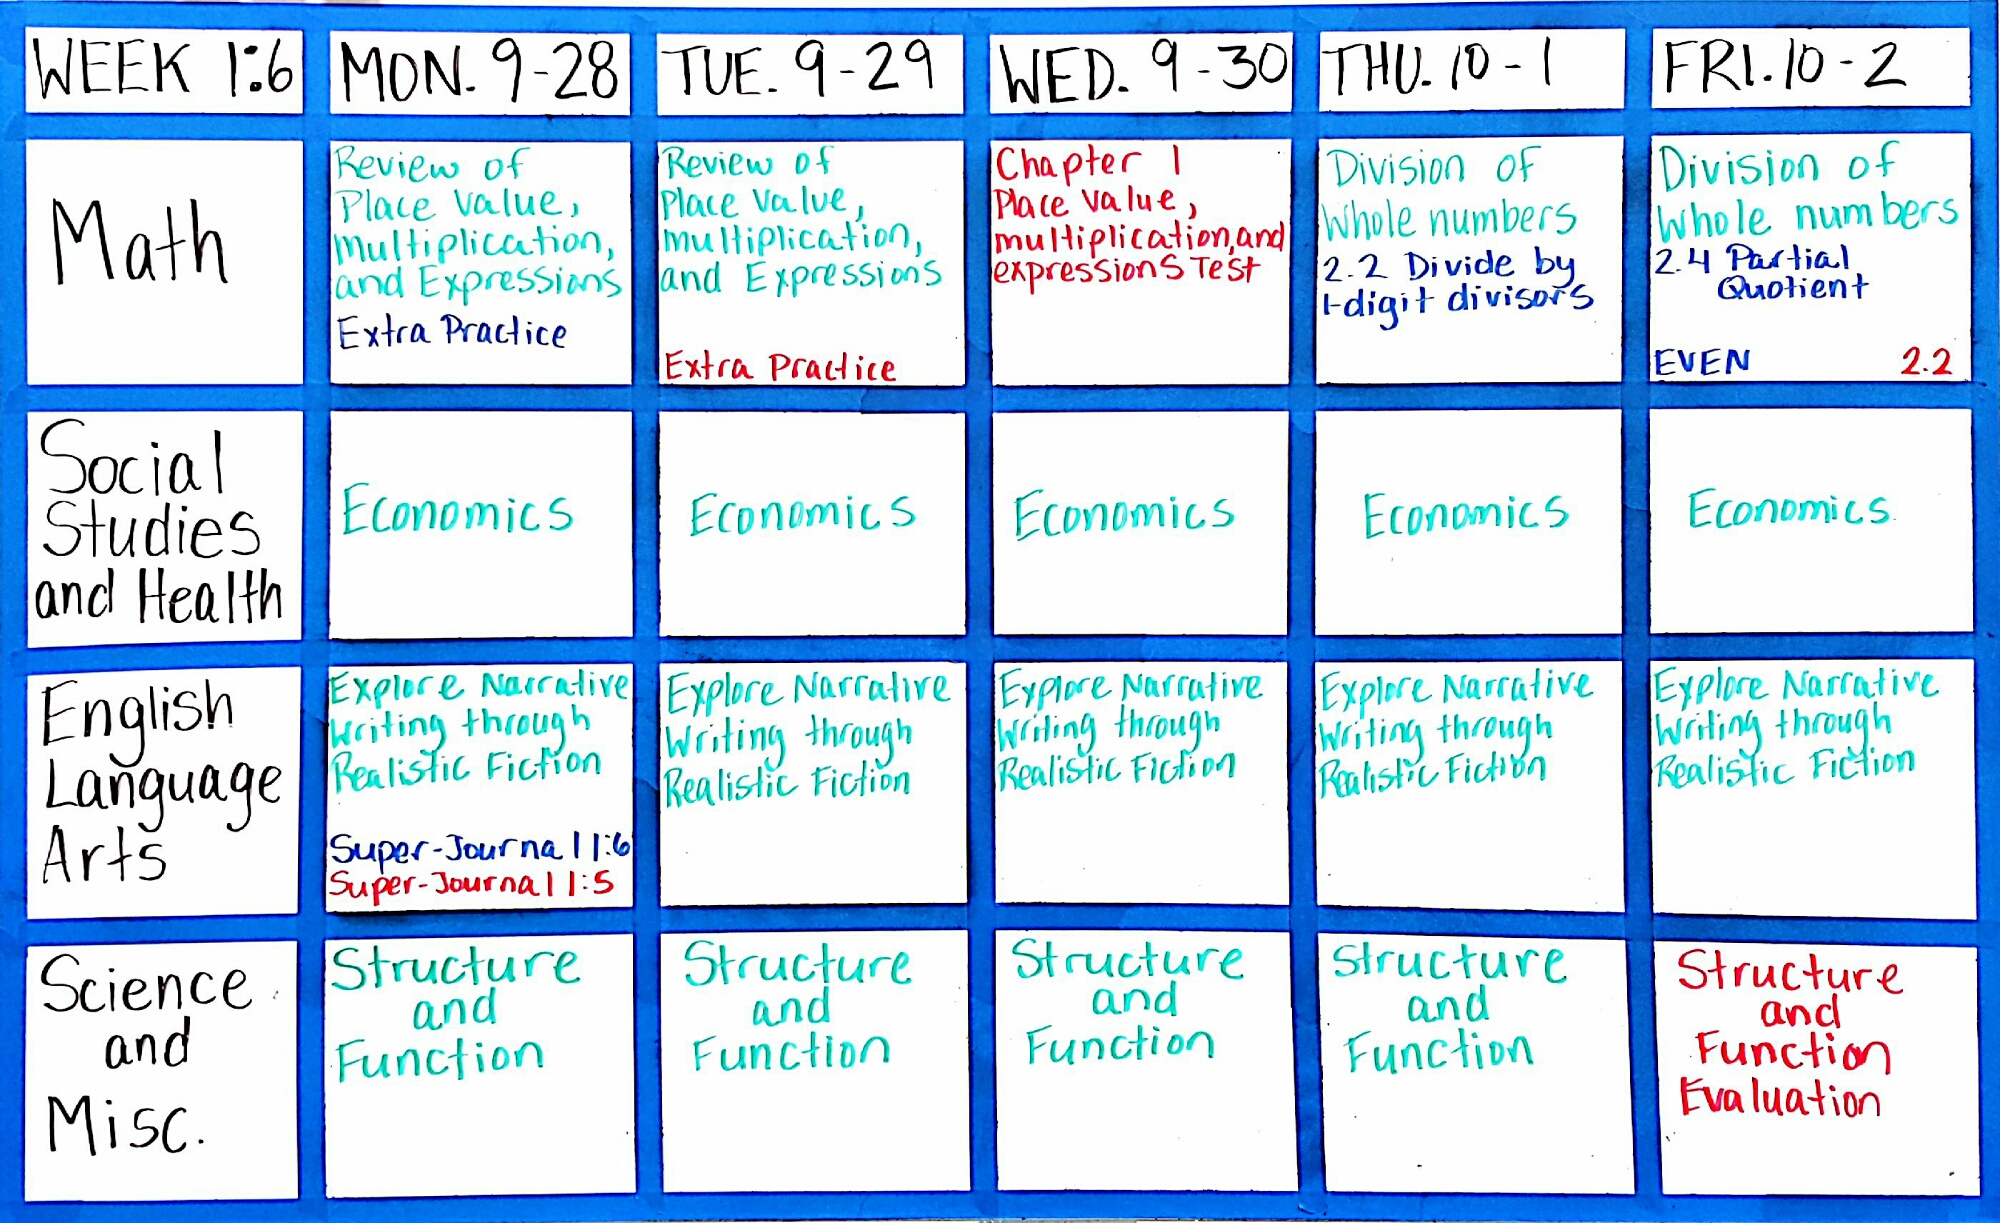 WEEK 1:6
MON. 9-28
TUE. 9-29
WED. 9-30
THU. 10-1
FRI. 10-2
Math
Review of
Place Value,
multiplication,
and Expressions
Extra Practice
Review of
Place Value,
multiplication,
and Expressions
Extra Practice
Chapter 1
Place Value,
multiplication, and
expressions Test
Division of
Whole numbers
2.2 Divide by
1-digit divisors
Division of
Whole numbers
2.4 Partial
Quotient
EVEN 2.2
Social
Studies
and Health
Economics
Economics
Economics
Economics
Economics
English
Language
Arts
Explore Narrative
Writing through
Realistic Fiction
Super-Journal 1:6
Super-Journal 1:5
Explore Narrative
Writing through
Realistic Fiction
Explore Narrative
Writing through
Realistic Fiction
Explore Narrative
Writing through
Realistic Fiction
Explore Narrative
Writing through
Realistic Fiction
Science
and
Misc.
Structure
and
Function
Structure
and
Function
Structure
and
Function
Structure
and
Function
Structure
and
Function
Evaluation